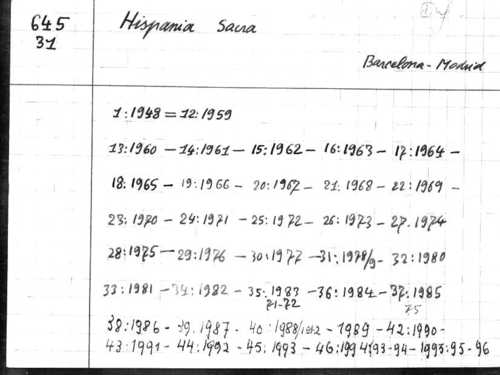 645
31
Hispania Sacra
Barcelona - Madrid
1:1948 = 12:1959
13:1960 - 14:1961 - 15:1962 - 16:1963 - 17:1964 -
18:1965 - 19:1966 - 20:1967 - 21:1968 - 22:1969 -
23:1970 - 24:1971 - 25:1972 - 26:1973 - 27.1974
28:1975 - 29:1976 - 30:1977 - 31:1978/9 - 32:1980
33:1981 - 34:1982 - 35:1983 - 36:1984 - 37:1985
71-72 75
38:1986 - 39.1987 - 40:1988/1+2 - 1989 - 42:1990 -
43:1991 - 44:1992 - 45:1993 - 46:1994:93-94 - 1995:95-96